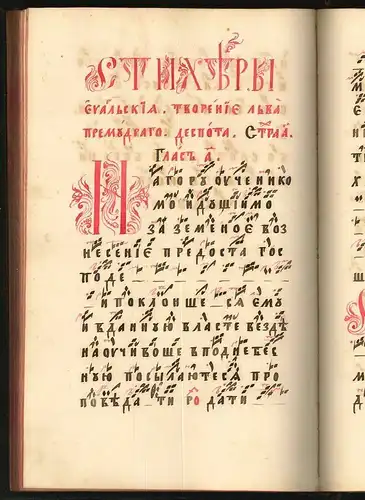 СТИХѢРЫ
ЕѴАЛЬСКІЯ. ТВОРЕНІЕ ЛЬВА
ПРЕМУДРАГО. ДЕСПОТА.
ГЛАСЪ А҃.
НА ГОРУ ОУЧЕНИКО
МО ИДУЩИМО
ЗА ЗЕМЕНОЕ ВОЗ
НЕСЕНІЕ ПРЕДОСТА ГОС
ПОДЕ
И ПОКЛОНШЕ СЯ ЕМУ
И ВДАННУЮ ВЛАСТЕ ВЕЗДѢ
НАОУЧИВОШЕ В ПОДНЕБЕС
НУЮ ПОСЫЛАЮТЕСЯ ПРО
ПОВѢДАТИ